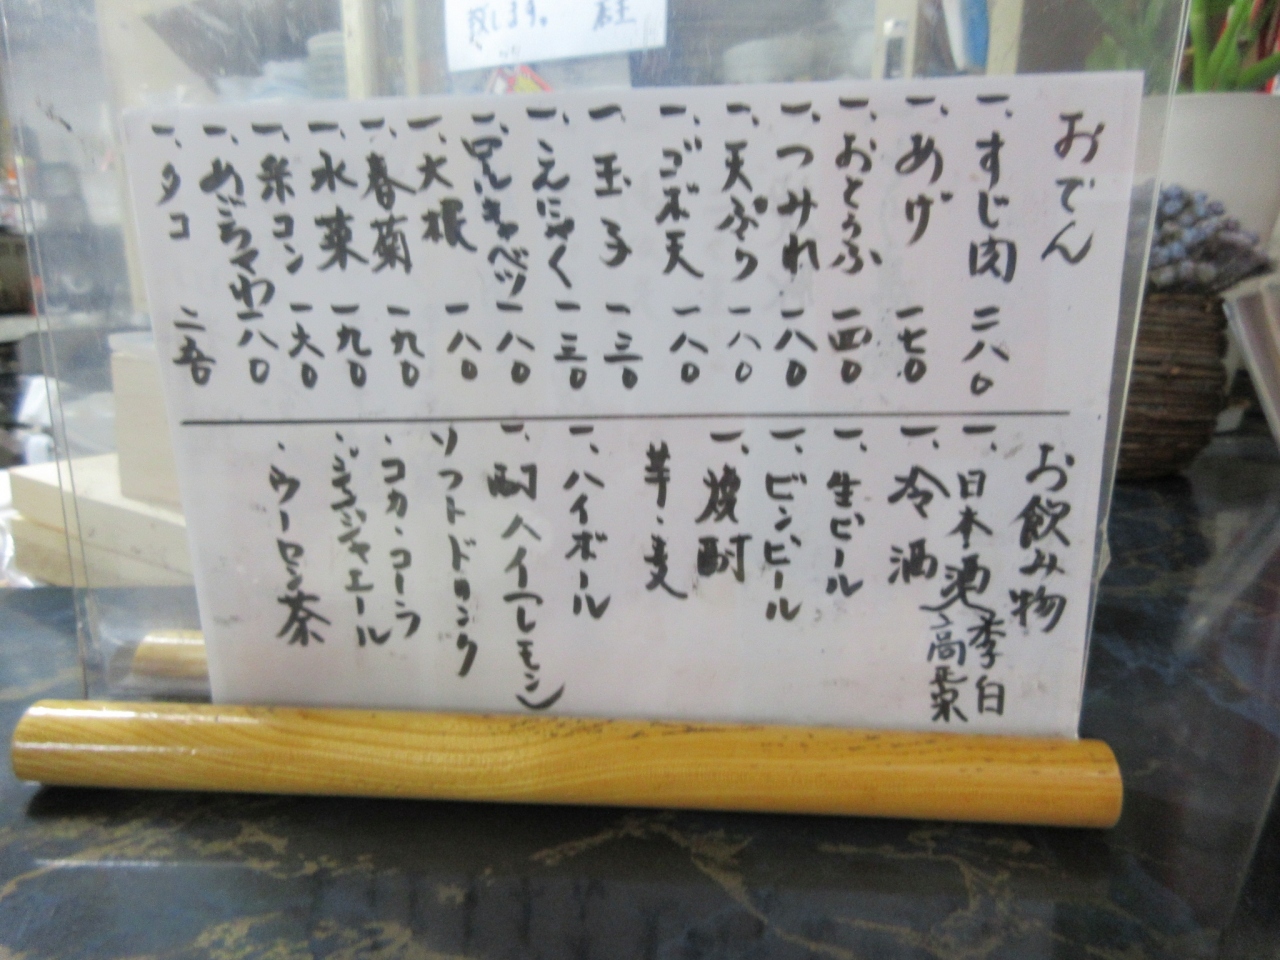 致します。 店主
おでん
一、すじ肉 二八〇
一、あげ 一七〇
一、おとうふ 一四〇
一、つみれ 一八〇
一、天ぷら 一八〇
一、ゴボ天 一八〇
一、玉子 一三〇
一、こんにゃく 一三〇
一、キャベツ 一八〇
一、大根 一八〇
一、春菊 一九〇
一、水菜 一九〇
一、糸コン 一六〇
一、 一八〇
一、タコ 二五〇
お飲み物
一、日本酒(李白
高正宗
一、冷酒
一、生ビール
一、ビンビール
一、焼酎
芋・麦
一、ハイボール
一、酎ハイ(レモン)
ソフトドリンク
・コカ・コーラ
・ジンジャエール
・ウーロン茶